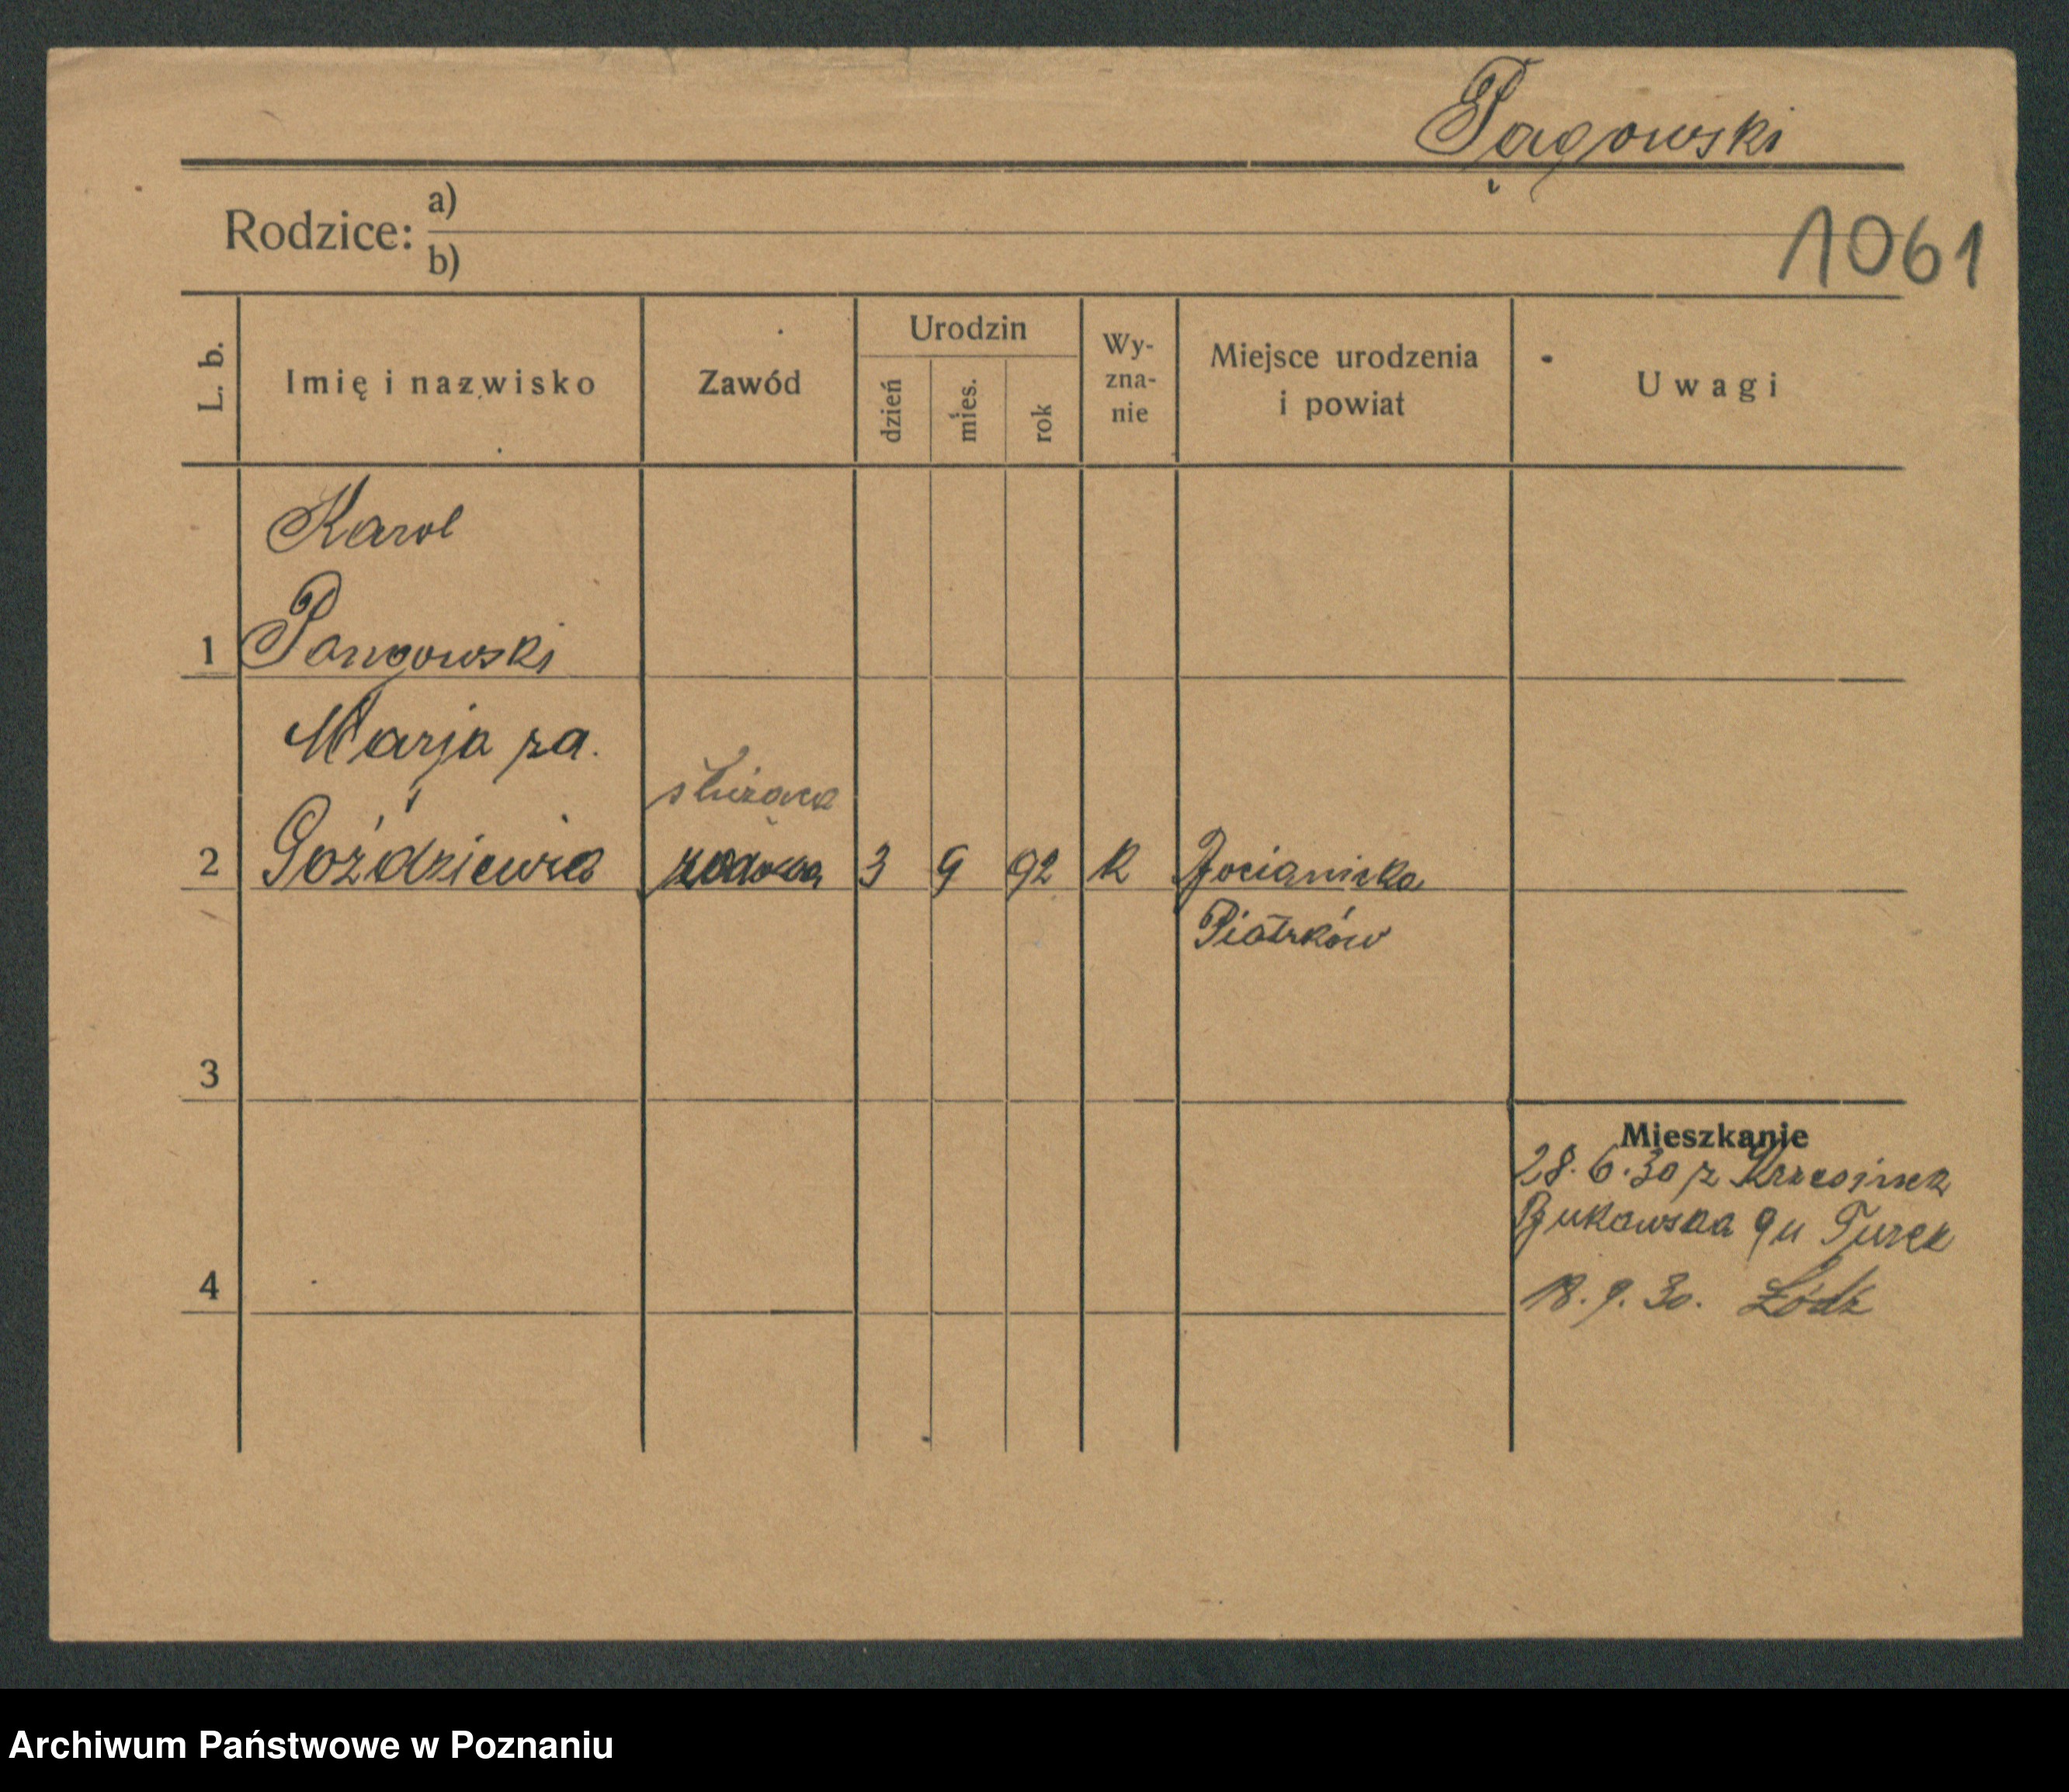 Pągowski
1061
Rodzice: a)
b)
L. b. Imię i nazwisko Zawód Urodzin dzień mies. rok Wy-zna-nie Miejsce urodzenia i powiat Uwagi
Karol
1 Pangowski
Marja za.
służąca
2 Goździewicz 3 9 92 k
Piotrków
3
Mieszkanie
28.6.30 z Krzesinek
Bukowska 9 u Turek
4
18.9.30. Łódź
Archiwum Państwowe w Poznaniu